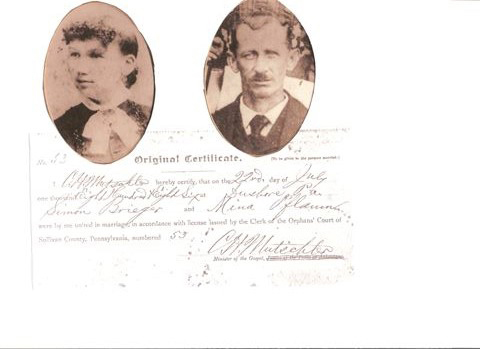 No. 53 Original Certificate. (To be given to the persons married.)
I, C. H. Mutschler hereby certify, that on the 22nd day of July
one Eight Hundred Eighty Six Dushore Pa.
Simon Brieger and Mina
were by me united in marriage, in accordance with license issued by the Clerk of the Orphans' Court of
Sullivan County, Pennsylvania, numbered 53
C. H. Mutschler
Minister of the Gospel,